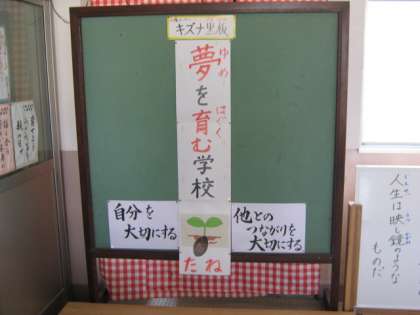 キズナ黒板
夢を育む学校
ゆめ
はぐく
たね
自分を
大切にする
他との
つながりを
大切にする
人生は映し鏡のような
ものだ